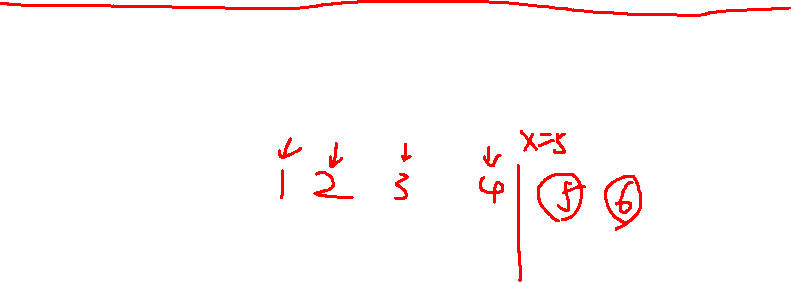 x=5
1 2 3 4 5 6